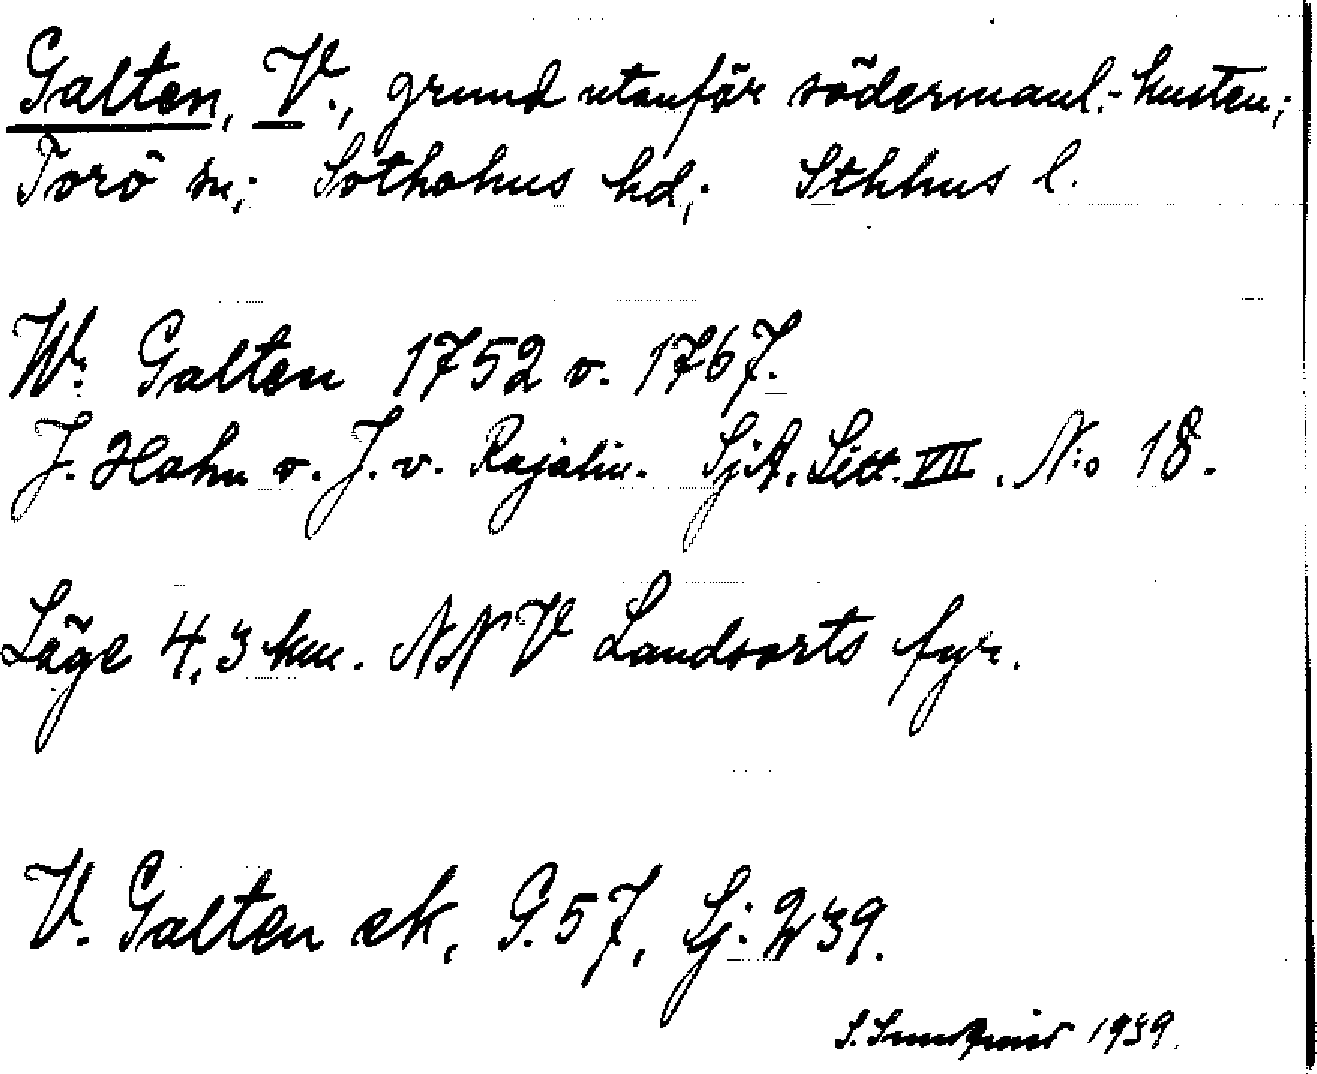 Galten, V., grund utanför södermanl.-kusten;
Torö sn; Sotholms hd; Sthlms l.
W: Galten 1752 o. 1767.
J. Hahn o. J. v. Rajalin. SjA. Litt. VII. N:o 18.
Läge 4,3 km. NNV Landsorts fyr.
V. Galten ek, G. 57, Sj: 239.
1939.